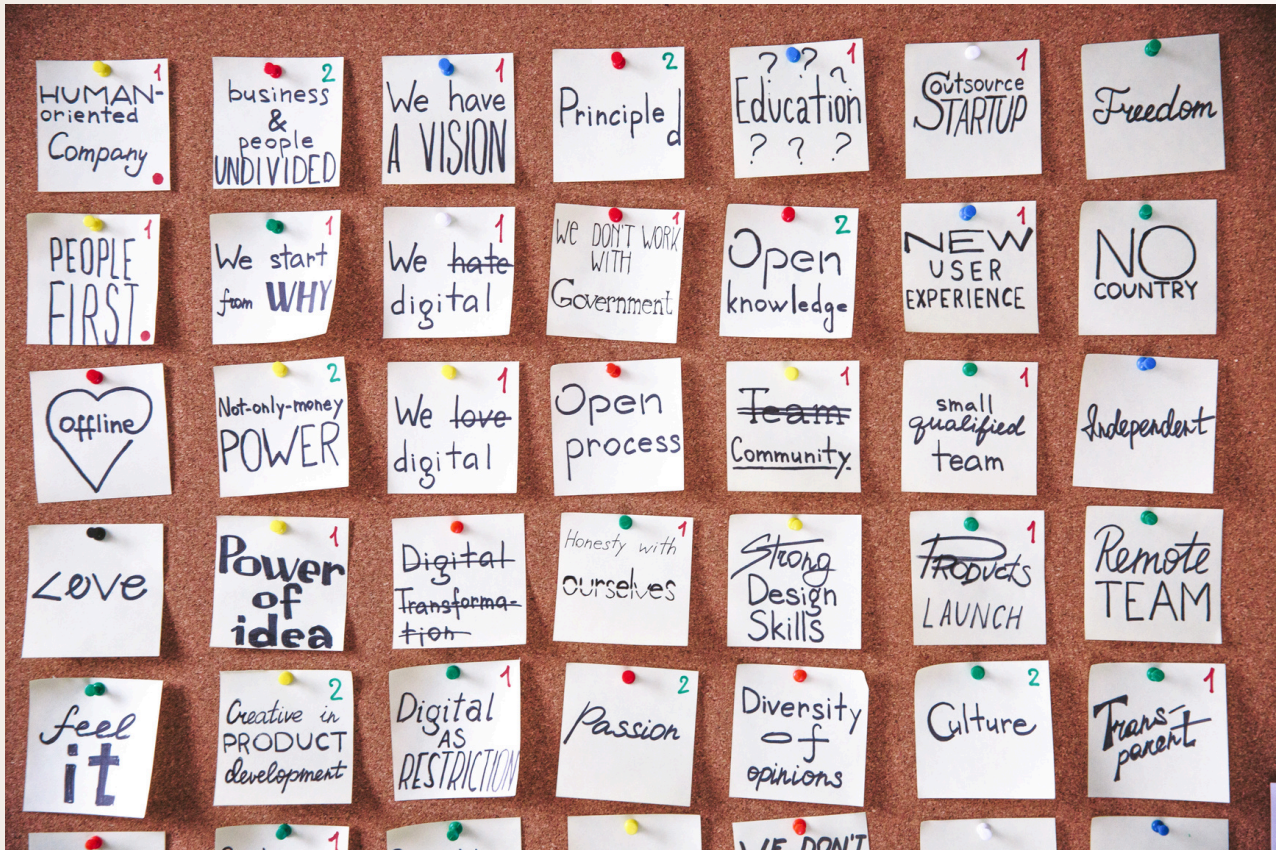 1
HUMAN-
oriented
Company
2
business
&
people
UNDIVIDED
1
We have
A VISION
2
Principled
1
? ? ?
Education
? ? ?
1
Outsource
STARTUP
Freedom
1
PEOPLE
FIRST
1
We start
from WHY
1
We hate
digital
1
We DON'T WORK
WITH
Government
2
Open
knowledge
1
NEW
USER
EXPERIENCE
NO
COUNTRY
offline
2
Not-only-money
POWER
1
We love
digital
Open
process
1
Team
Community
1
small
qualified
team
Independent
Love
1
Power
of
idea
Digital
Transforma-
tion
1
Honesty with
ourselves
Strong
Design
Skills
1
PRODUCTS
LAUNCH
Remote
TEAM
feel
it
2
Creative in
PRODUCT
development
1
Digital
AS
RESTRICTION
2
Passion
Diversity
of
opinions
2
Culture
1
Trans-
parent
1
WE DON'T